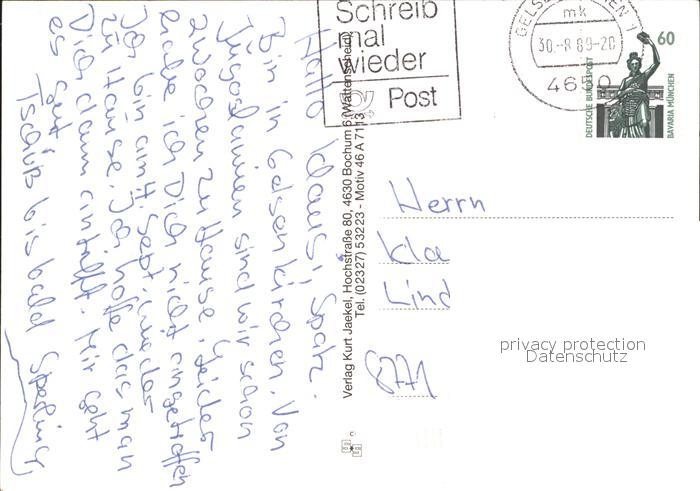 Hallo Klaus, Spatz.
Bin in Gelsenkirchen. Von
Jugoslawien sind wir schon
2 Wochen zu Hause. Leider
habe ich Dich nicht angetroffen
Ich bin am 4. Sept. wieder
zu Hause. Ich hoffe das man
Dich dann antrifft. Mir geht
es gut
Tschüß bis bald Sperling
Verlag Kurt Jaekel, Hochstraße 80, 4630 Bochum 6 (Wattenscheid)
Tel. (02327) 53223 - Motiv 46 A 7113
Schreib
mal
wieder
Post
GELSENKIRCHEN 1
mk
30.-8.89-20
4650
60
DEUTSCHE BUNDESPOST
BAVARIA MÜNCHEN
Herrn
Kla
Lind
8771
privacy protection
Datenschutz